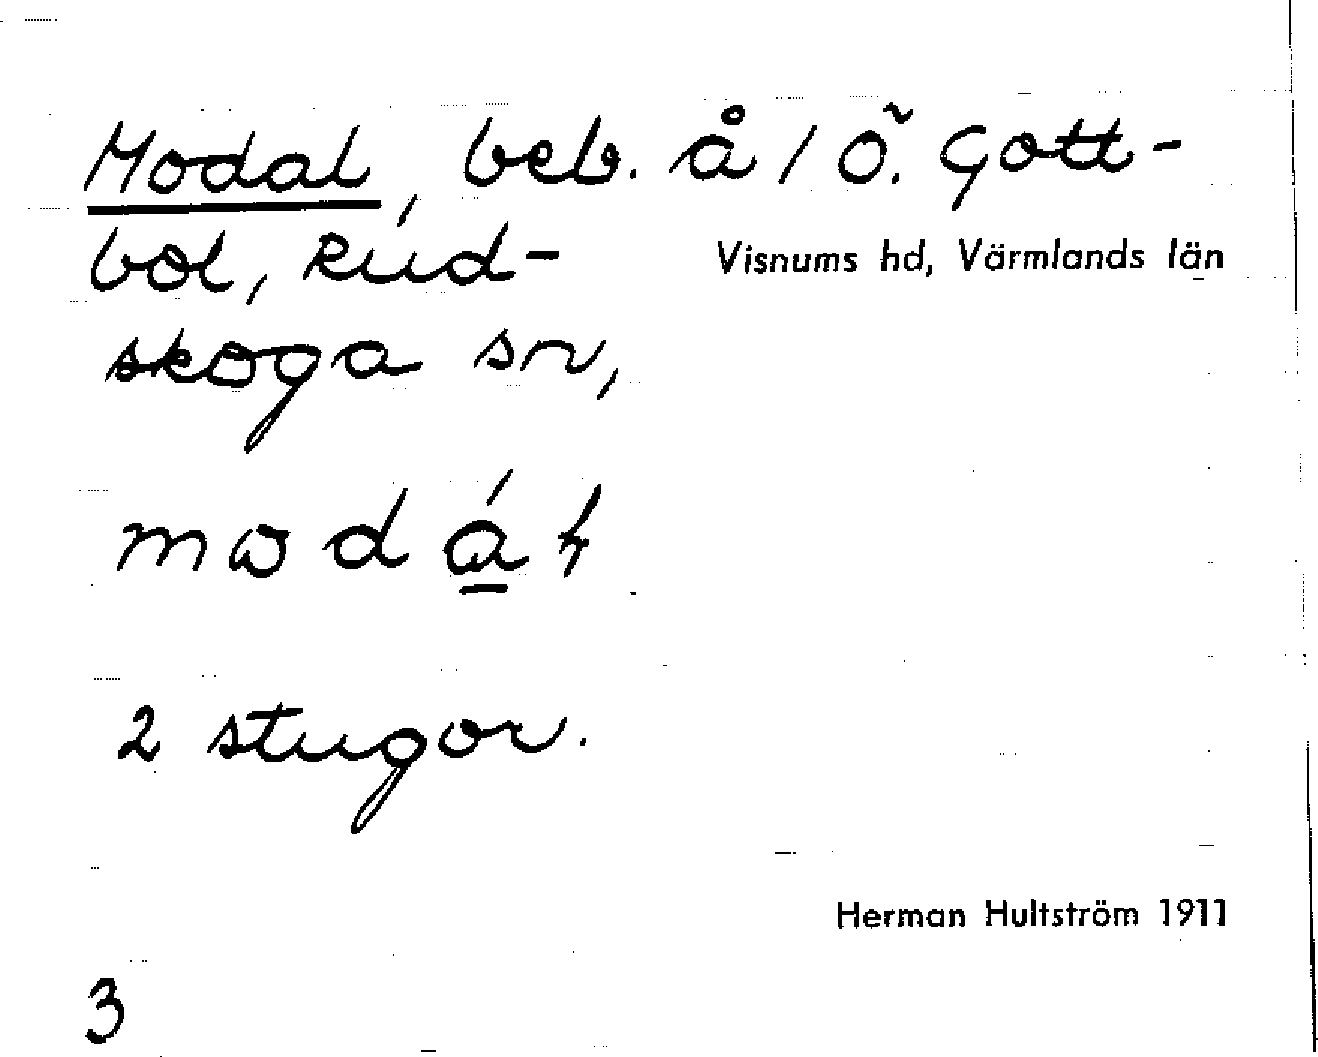 Modal, beb. å 1 Ö. Gott-
bol, Rud-
Visnums hd, Värmlands län
skoga sn,
2 stugor.
Herman Hultström 1911
3